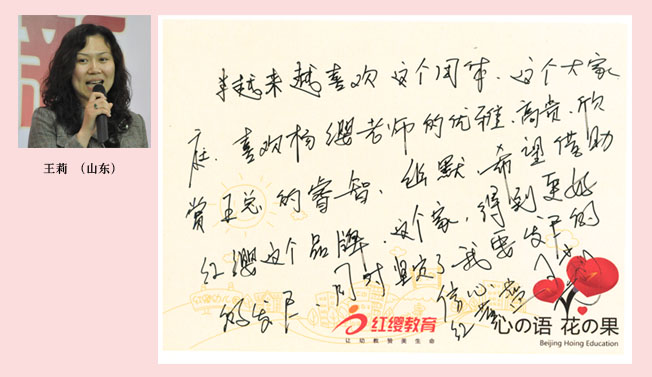 王莉 （山东）
越来越喜欢这个团体、这个大家
庭、喜欢杨缨老师的优雅、高贵、欣
赏王总的睿智、幽默、希望借助
红缨这个品牌、这个家、得到更好
的发展 同时坚定了我要发展的
信心
红缨教育
让幼教赞美生命
心の语 花の果
Beijing Hoing Education